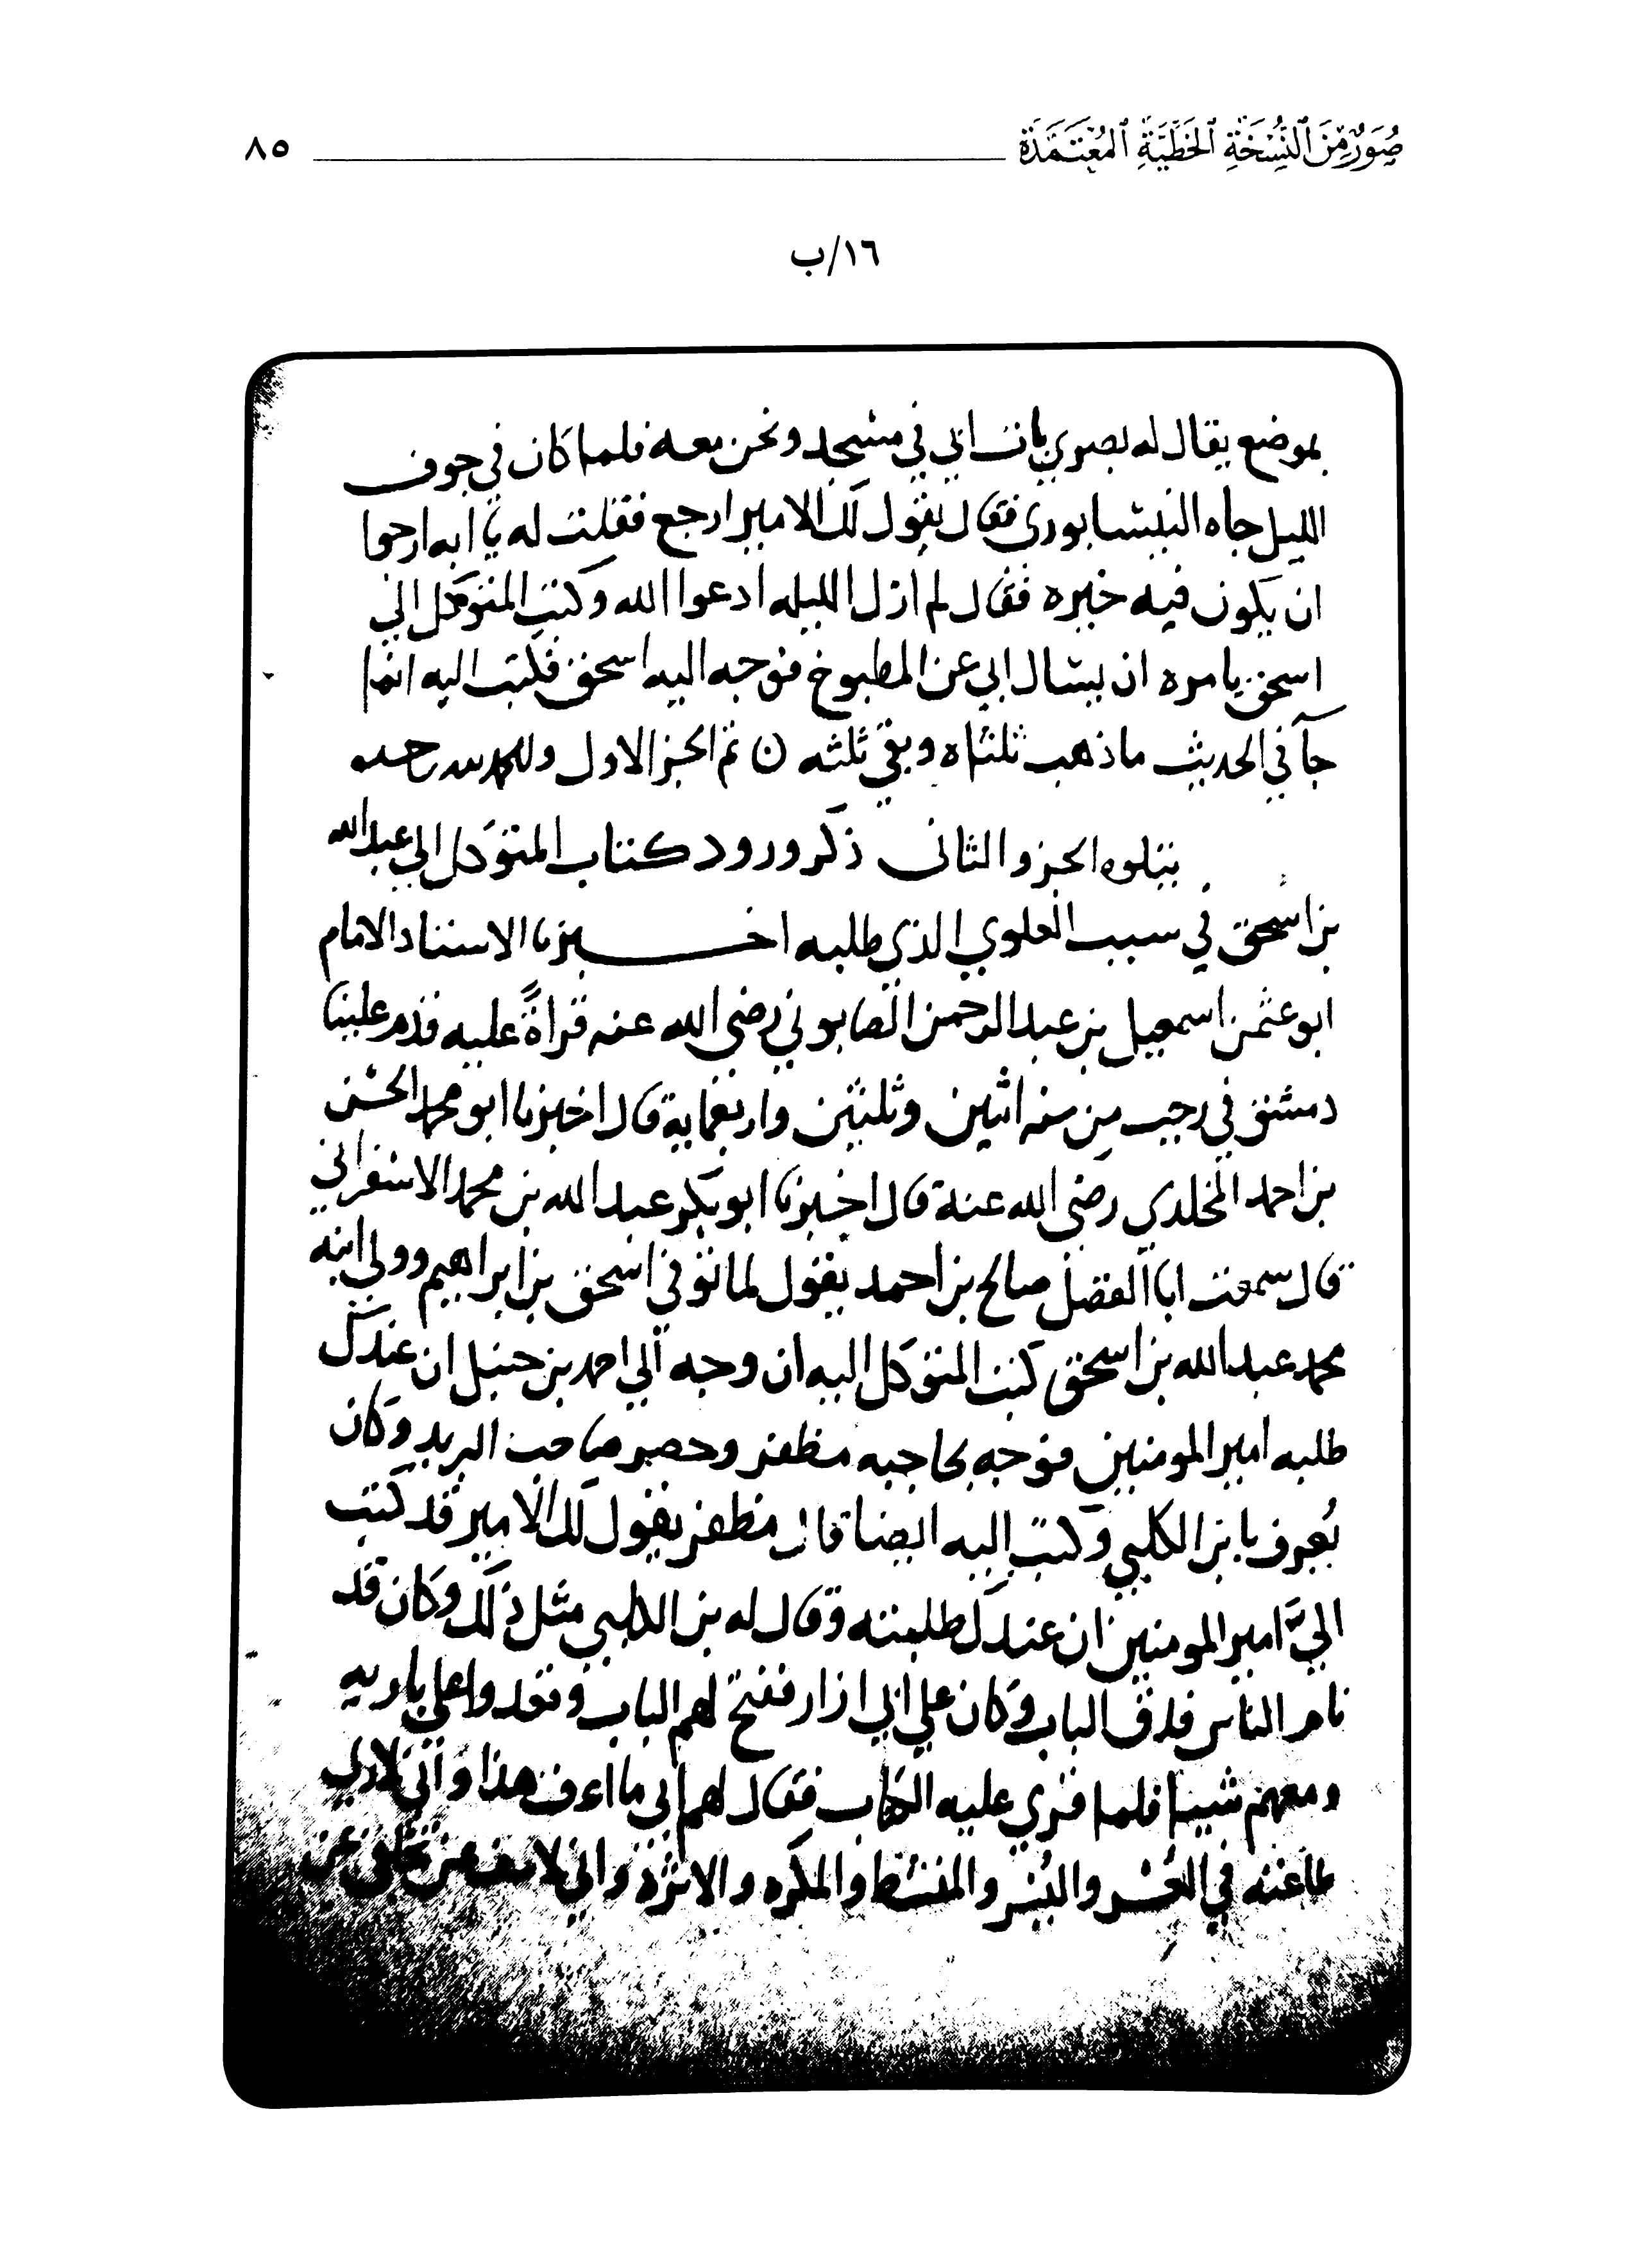 صُوَرٌ مِّنَ ٱلنُّسْخَةِ ٱلخَطِّيَّةِ ٱلمُعْتَمَدَةِ ٨٥
١٦/ب
بموضع يقال له بصرى بات ابي في مسجد ونحن معه فلما كان في جوف
الليل جاه النيسابوري فقال يقول لك الامير ارجع فقلت له يا ابه ارجوا
ان يكون فيه خيره فقال لم ازل الليله ادعوا الله وكتب المتوكل الي
اسحق يامره ان يسال ابي عن المطبوخ فوجه اليه اسحق فكتب اليه انما
جآ في الحديث ما ذهب ثلثاه وبقي ثلثه ن تم الجز الاول والحمد لله وحده
يتلوه الجزو الثاني ذكر ورود كتاب المتوكل الي عبد الله
بن اسحق في سبب العلوي الذي طلبه اخبرنا الاستاد الامام
ابو عثمن اسمعيل بن عبد الرحمن الصابوني رضي الله عنه قراةً عليه قدم علينا
دمشق في رجب من سنه اثنين وثلثين واربعماية قال اخبرنا ابو محمد الحسن
بن احمد المخلدي رضي الله عنة قال اخبرنا ابو بكر عبد الله بن محمد الاسفرايني
قال سمعت ابا الفضل صالح بن احمد يقول لما توفي اسحق بن ابراهيم وولي ابنه
محمد عبد الله بن اسحق كتب المتوكل اليه ان وجه الي احمد بن حنبل ان عندك
طلبه امير المومنين فوجه بحاجبه مظفر وحضر صاحب البريد وكان
يُعرف بابن الكلبي وكتب اليه ايضا قال مظفر يقول لك الامير قد كتب
اليَّ امير المومنين ان عندك طلبته وقال له بن الكلبي مثل ذلك وكان قد
نام الناس فدق الباب وكان علي ابي ازار ففتح لهم الباب وقعد واعلي بابه
ومعهم نسا فلما قري عليه الكتاب فقال لهم ابي ما اعرف هذا واني لاري
طاعته في العُسر واليُسر والمنشط والمكره والاثره واني لاسف عن تخلفي عن